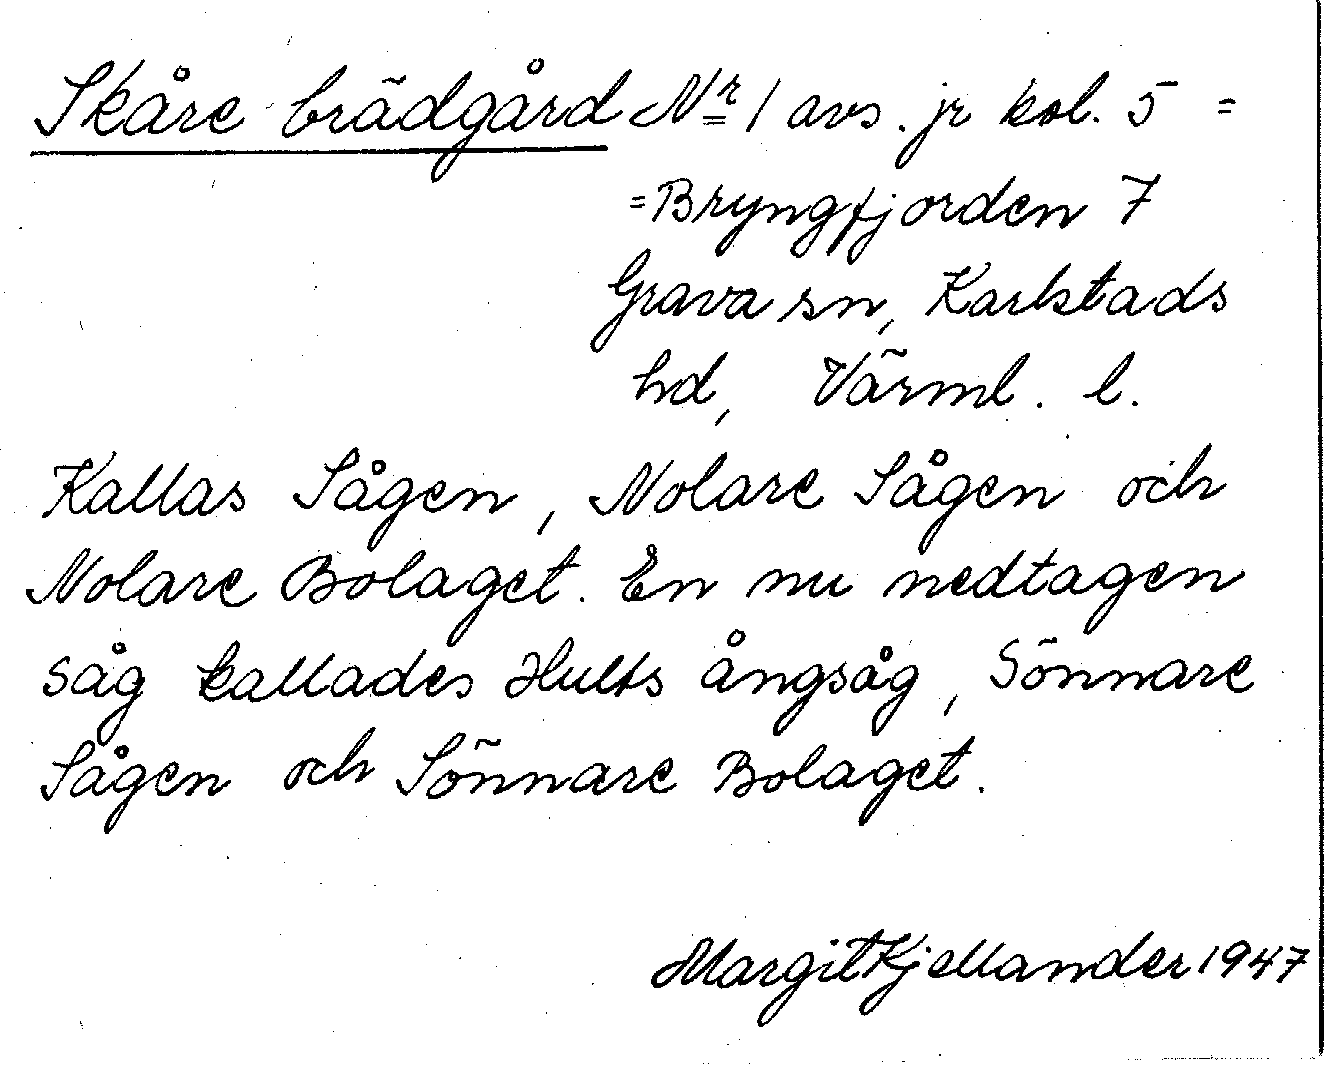 Skåre brädgård Nr 1 avs. jr kol. 5 =
= Bryngfjorden 7
Grava sn, Karlstads
hd, Värml. l.
Kallas Sågen, Nolare Sågen och
Nolare Bolaget. En nu nedtagen
såg kallades Hults ångsåg, Sönnare
Sågen och Sönnare Bolaget.
Margit Kjellander 1947